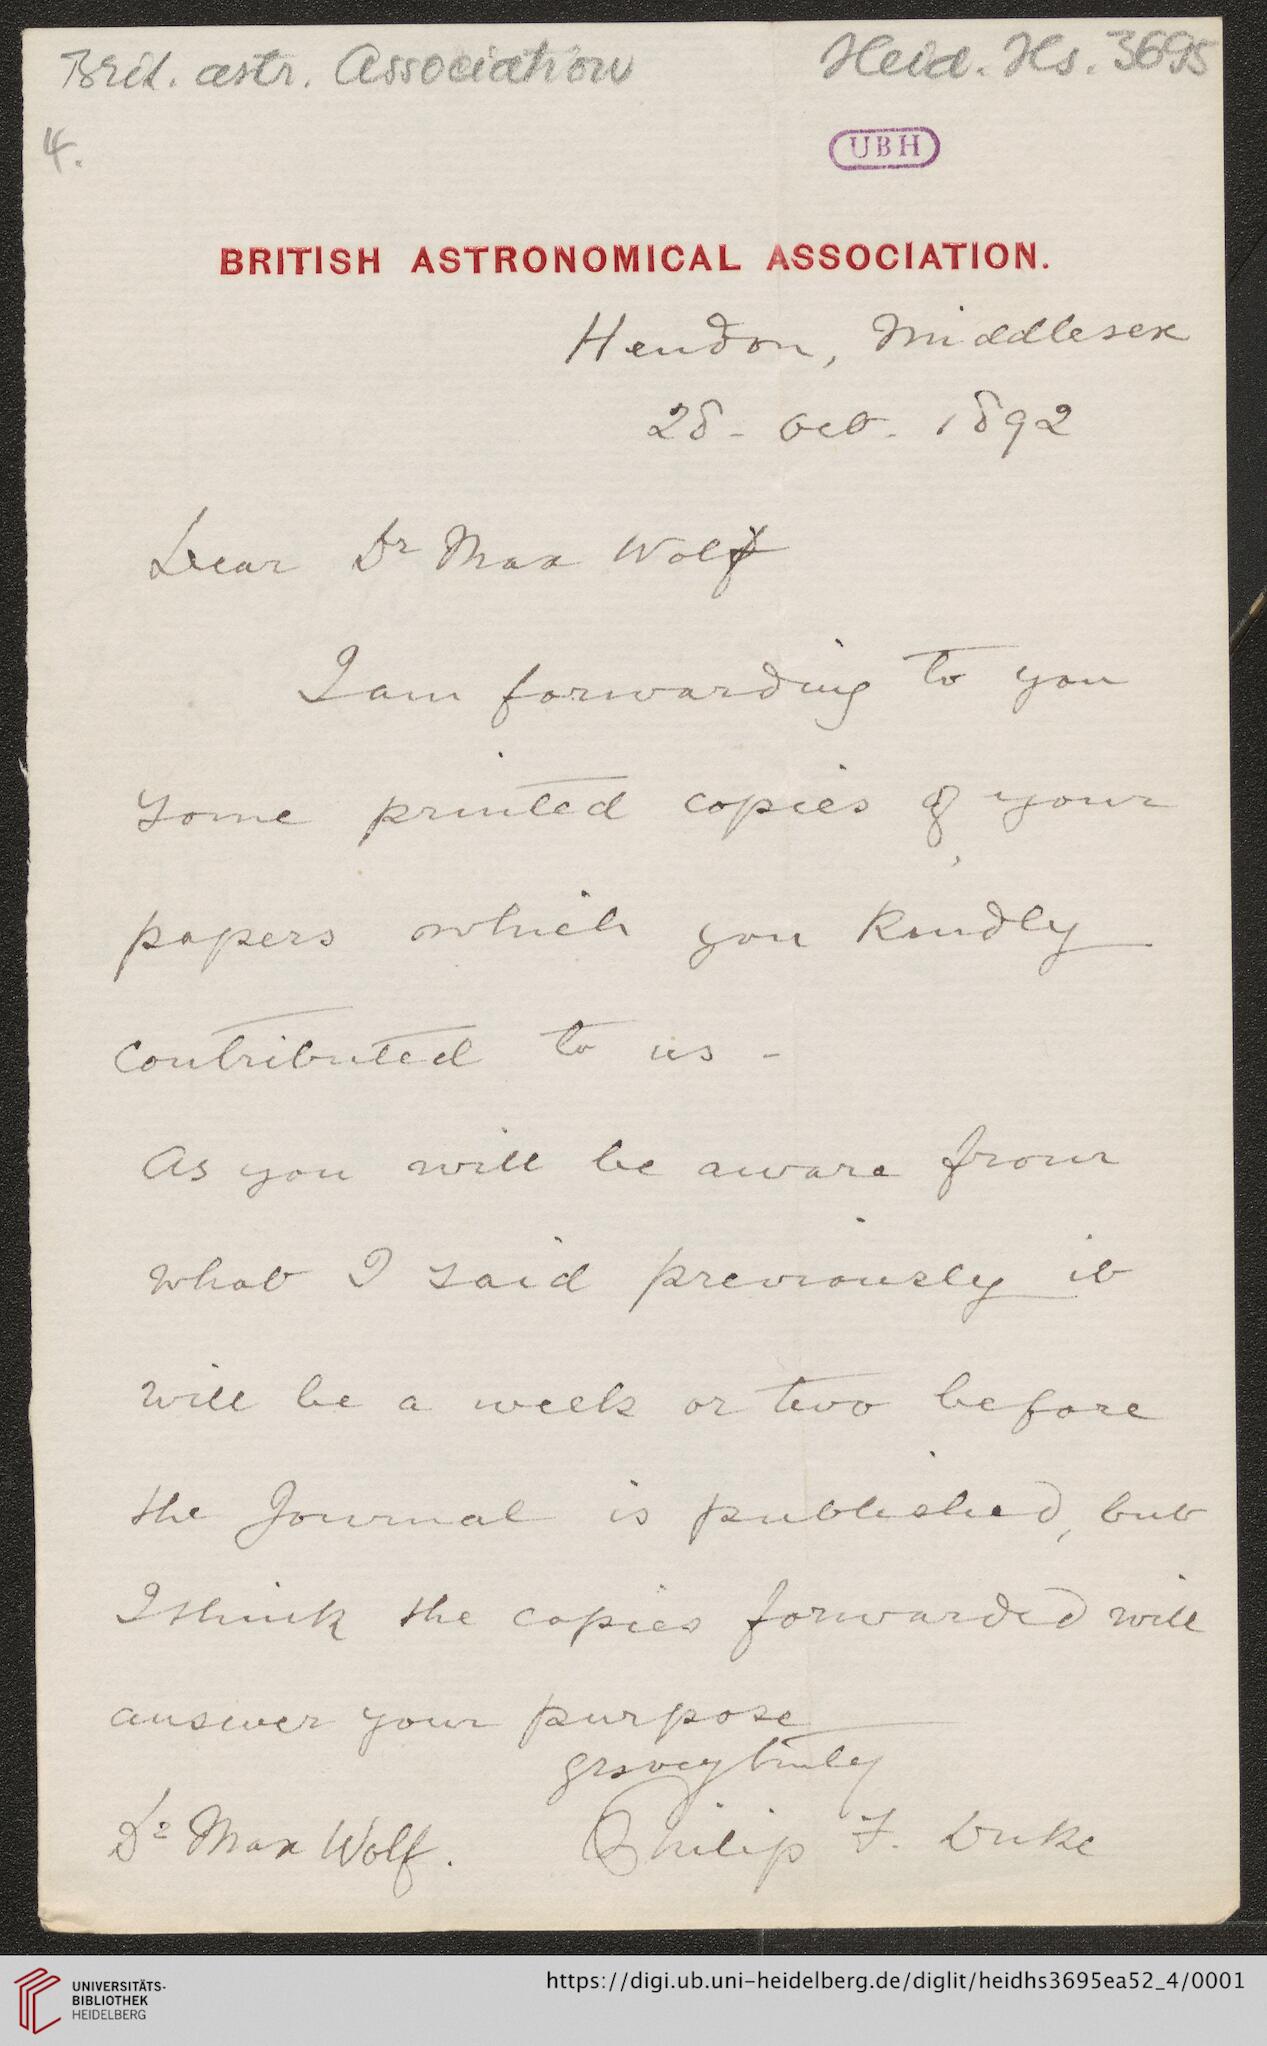 Brit. astr. Association
Heid. Hs. 3695
4.
UBH
BRITISH ASTRONOMICAL ASSOCIATION.
Hendon, Middlesex
28 - Oct. 1892
Dear Dr Max Wolf
I am forwarding to you
some printed copies of your
papers which you kindly
contributed to us -
As you will be aware from
what I said previously it
will be a week or two before
the Journal is published, but
I think the copies forwarded will
answer your purpose
yrs very truly
Dr Max Wolf.
Philip F. Duke
UNIVERSITÄTS-
BIBLIOTHEK
HEIDELBERG
https://digi.ub.uni-heidelberg.de/diglit/heidhs3695ea52_4/0001